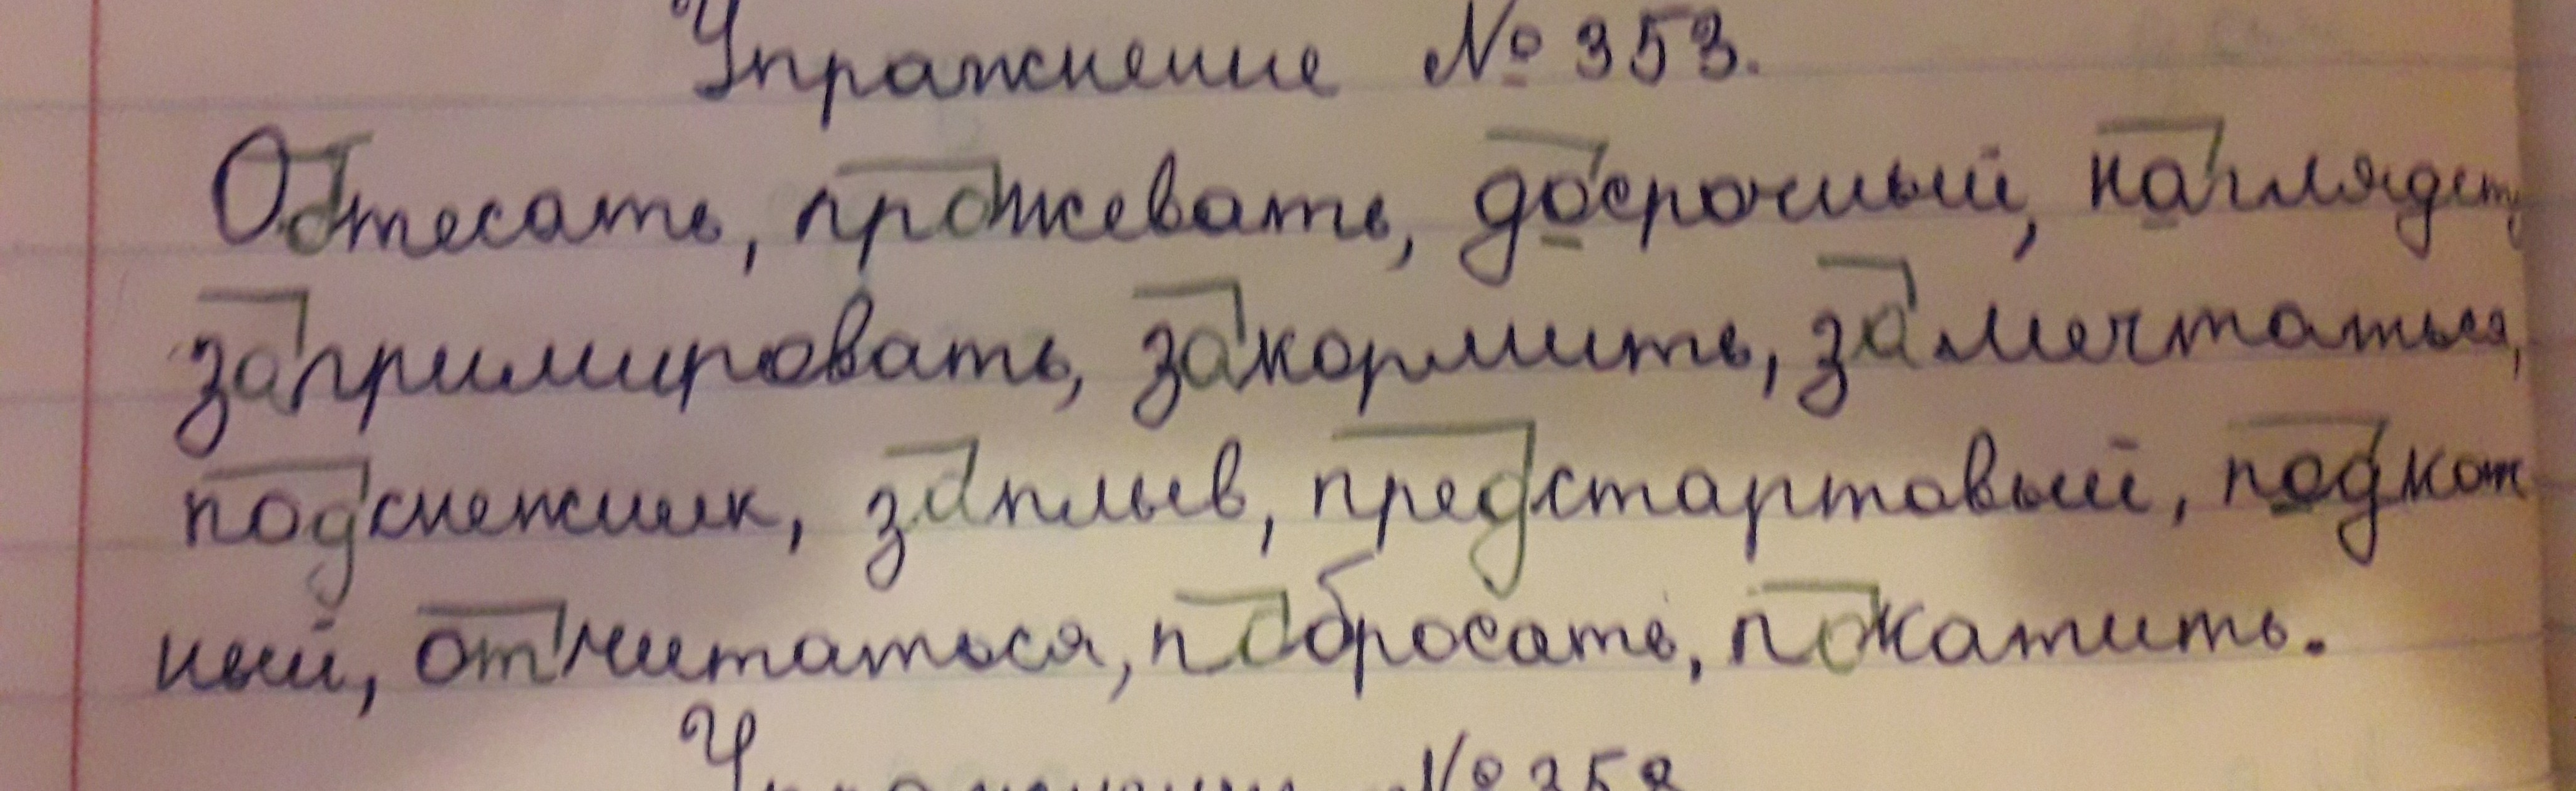 Упражнение № 353.
Обтесать, прожевать, досрочный, наглядеть
запримировать, закормить, замечтаться,
подснежник, заплыв, предстартовый, подкож
ный, отчитаться, побросать, покатить.
Упражнение № 358